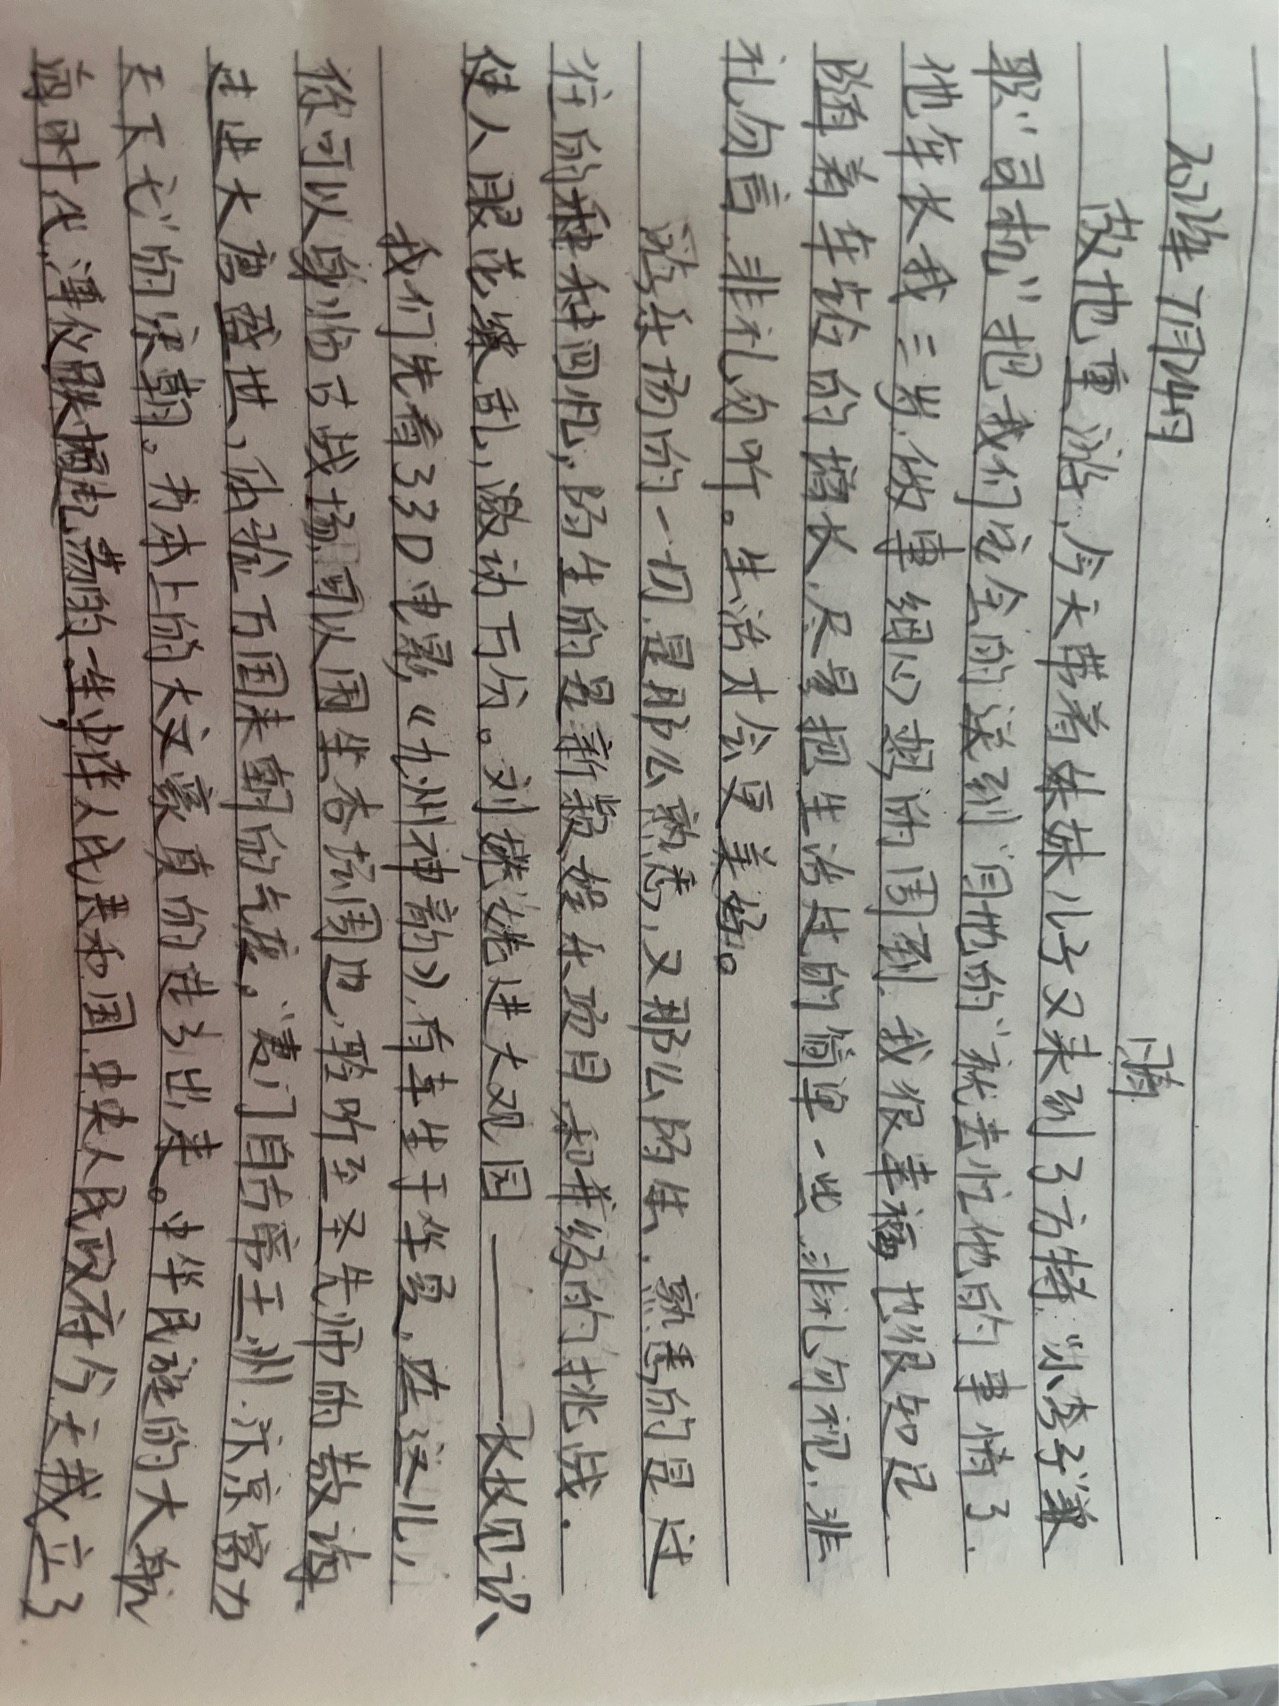 7月14日
晴
故地重游,今天带着妹妹儿子又来到了方特."小李子"兼
职"司机"把我们安全的送到目地的"就去忙他的事情了.
他年长我三岁.做事细心想的周到.我很幸福也很知足.
随着年龄的增长.尽量把生活过的简单一些.非礼勿视.非
礼勿言.非礼勿听。生活才会更美好。
游乐场的一切.是那么熟悉,又那么陌生.熟悉的是过
往的种种回忆,陌生的是新颖娱乐项目和带给的挑战.
使人眼花缭乱,激动万分。刘姥姥进大观园——长长见识、
我们先看33D电影《九州神韵》,有幸坐于坐员,在这儿,
你可以身临古战场.可以围坐杏坛周边,聆听至圣先师的教诲.
走进大唐盛世,体验万国来朝的气度。"夷门自古帝王州.汴京富力
天下无"的宋朝。书本上的大文豪真的走了出来。中华民族的大航
海时代.泽仪跌撞起荡的.坐中华人民共和国中央人民政府今天成立了.